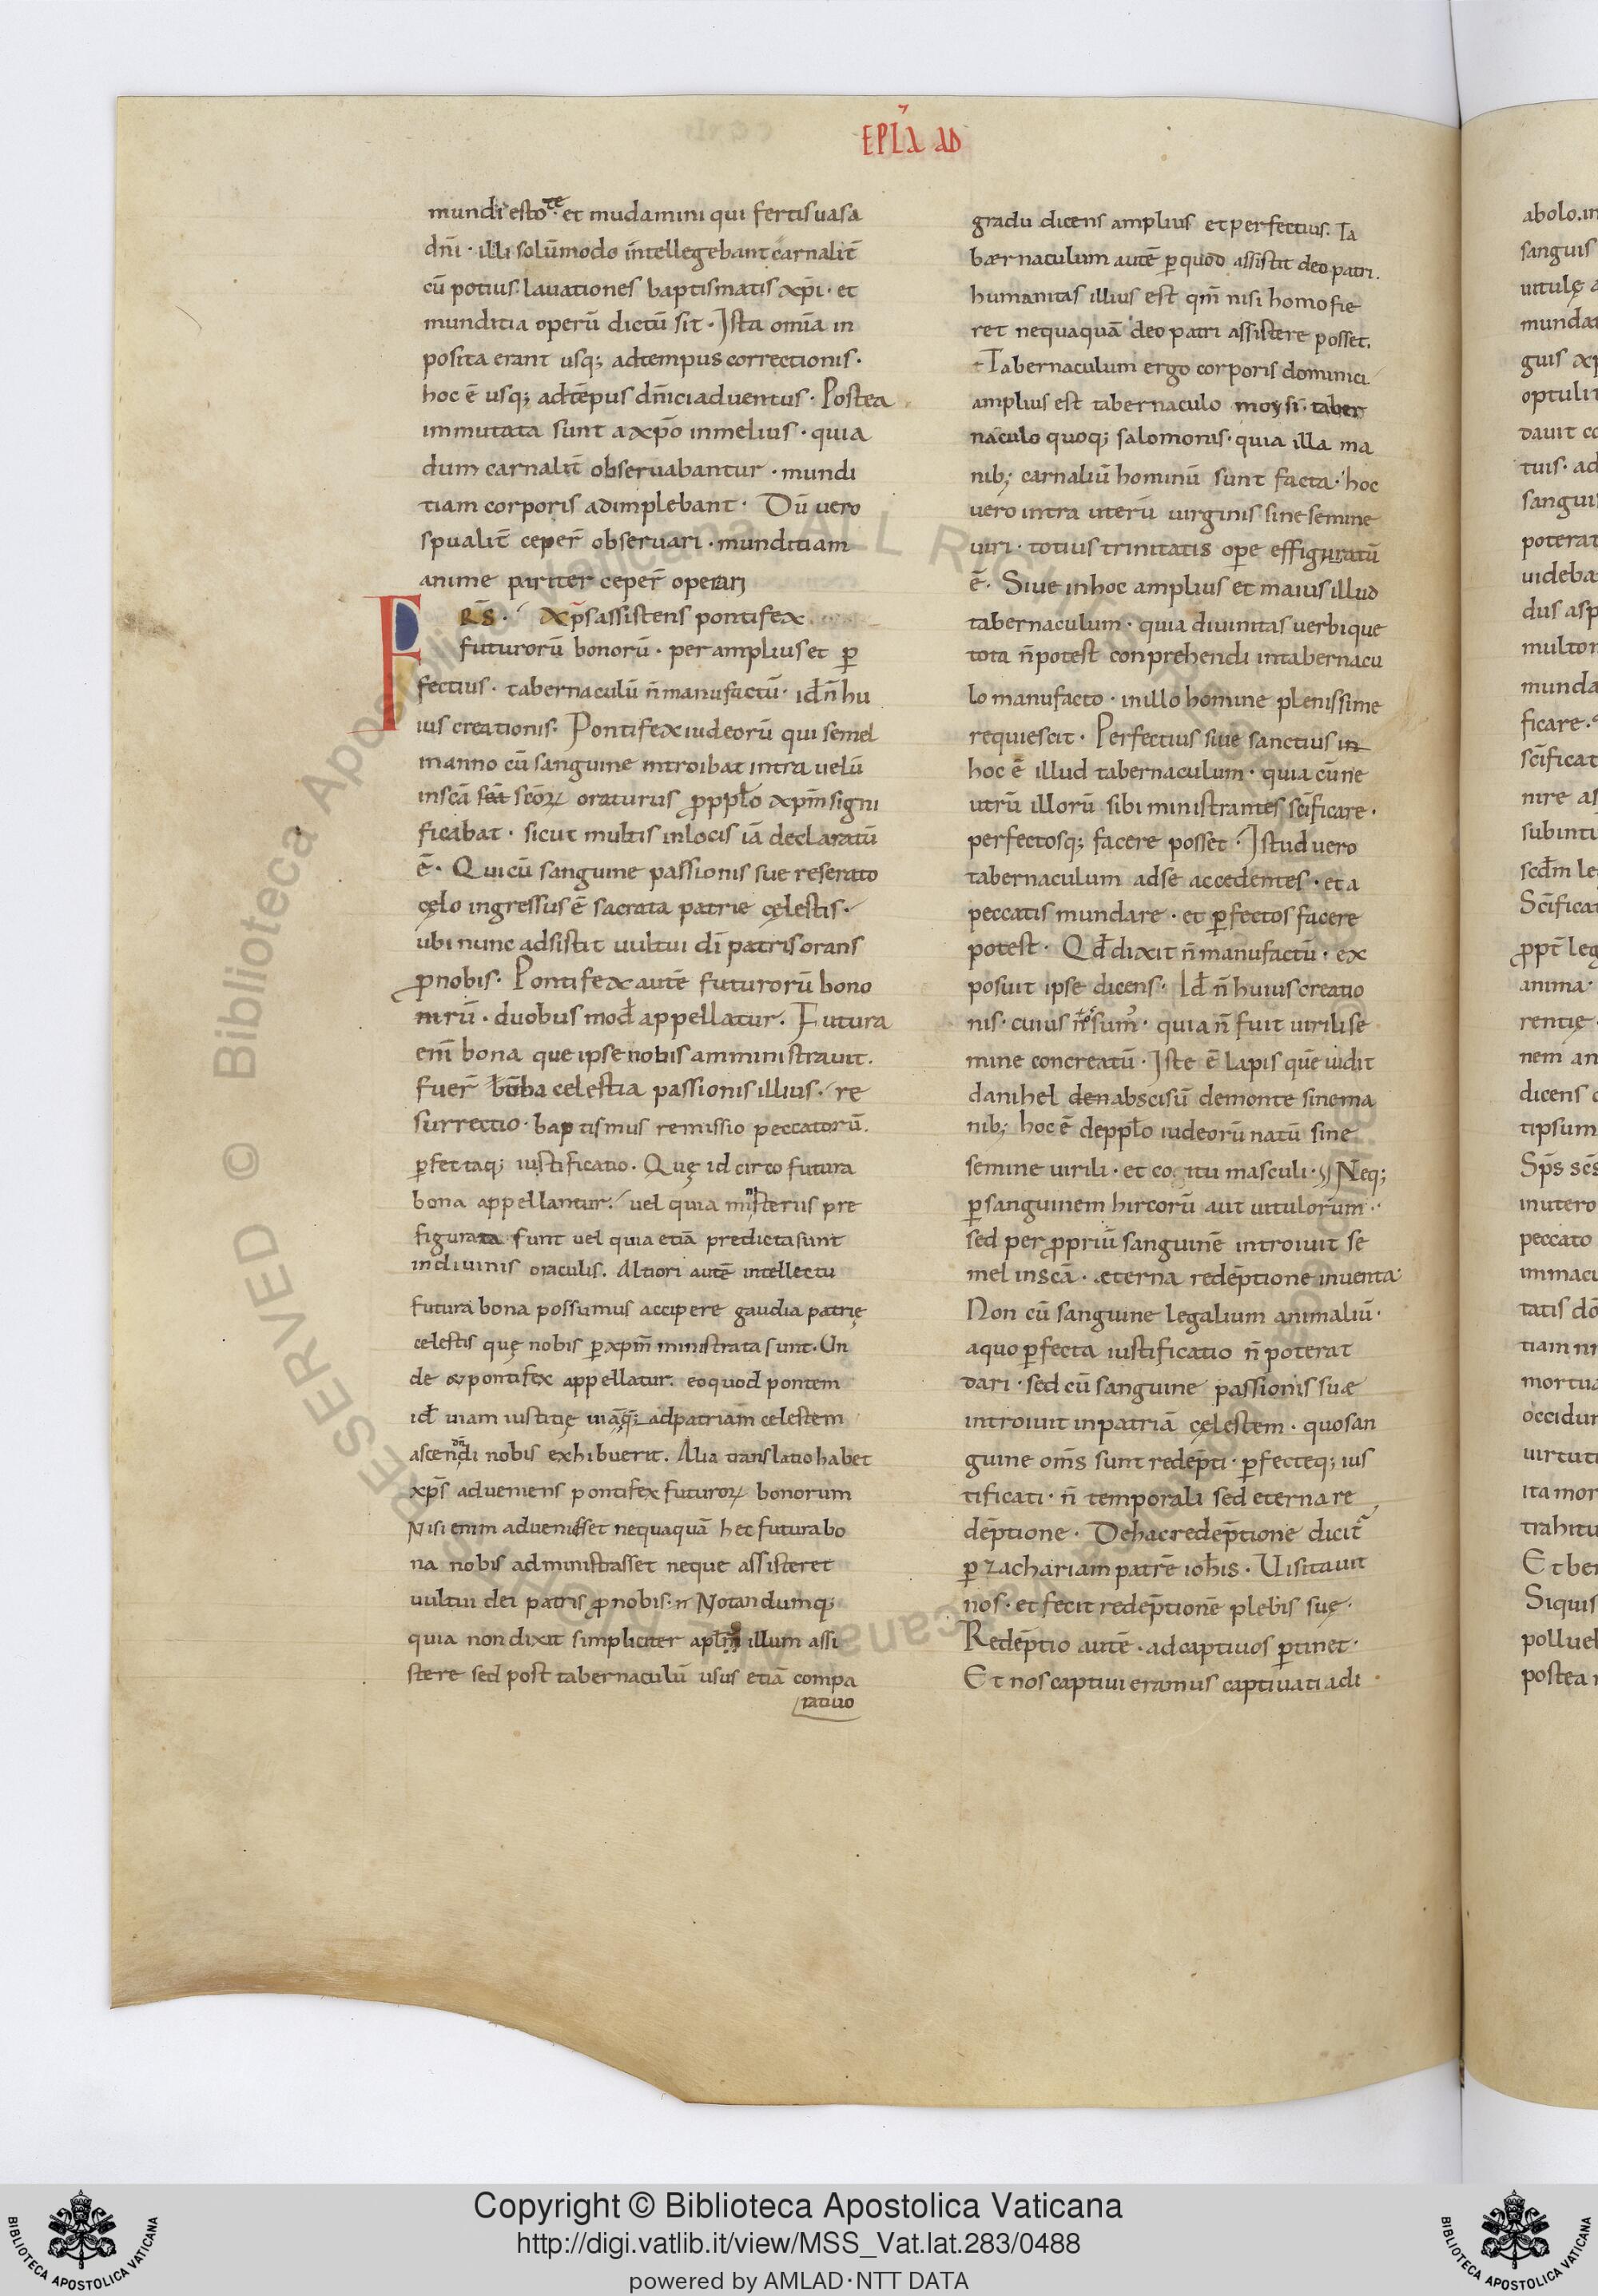 EPL̃A AD
mundi estote · et mudamini qui fertis uasa
dn̄i · illi solūmodo intellegebant carnalit̄
cū potius lauationes baptismatis xp̄i · et
munditia operū dictū sit · Ista om̄ia in
posita erant usq; ad tempus correctionis ·
hoc ē usq; ad tēpus dn̄ici aduentus · Postea
immutata sunt a xp̄o in melius · quia
dum carnalit̄ obseruabantur · mundi
tiam corporis adimplebant · Dū uero
sp̄ualit̄ ceper̄ obseruari · munditiam
anime pariter ceper̄ operari
xp̄s assistens pontifex
futurorū bonorū · per amplius et ꝑ
fectius · tabernaculū n̄ manufactū · id ē n̄ hu
ius creationis · Pontifex iudeorū qui semel
in anno cū sanguine introibat intra uelū
in sc̄a sc̄oꝝ oraturus ꝓ pp̄lo xp̄m signi
ficabat · sicut multis in locis iā declaratū
ē · Qui cū sanguine passionis sue reserato
cęlo ingressus ē sacrata patrie cęlestis ·
ubi nunc adsistit uultui dī patris orans
ꝓ nobis · Pontifex autē futurorū bono
rū · duobus mod̄ appellatur . Futura
enī bona que ipse nobis amministrauit .
fuer̄ celestia passionis illius · re
surrectio · baptismus remissio peccatorū .
ꝑfectaq; iustificatio · Quę idcirco futura
bona appellantur · uel quia misteriis pre
figurata sunt uel quia etiā predicta sunt
in diuinis oraculis . Altiori autē intellectu
futura bona possumus accipere gaudia patrię
celestis quę nobis ꝑ xp̄m ministrata sunt · Un
de & pontifex appellatur . eo quod pontem
id uiam iustitię ad patriam celestem
ascendendi nobis exhibuerit . Alia translatio habet
xp̄s adueniens pontifex futuroꝝ bonorum
Nisi enim aduenisset nequaquā hec futura bo
na nobis administrasset neque assisteret
uultui dei patris ꝓ nobis · Notandumq;
quia non dixit simpliciter apl̄m illum assi
stere sed post tabernaculū usus etiā compa
ratiuo
gradu dicens amplius et perfectius . Ta
bernaculum autē ꝑ quod assistit deo patri .
humanitas illius est qm̄ nisi homo fie
ret nequaquā deo patri assistere posset .
Tabernaculum ergo corporis dominici
amplius est tabernaculo moysi · taber
naculo quoq; salomonis · quia illa ma
nib; carnaliū hominū sunt facta · hoc
uero intra uterū uirginis sine semine
uiri · totius trinitatis ope effiguratū
ē · Siue in hoc amplius et maius illud
tabernaculum · quia diuinitas uerbi que
tota n̄ potest conprehendi in tabernacu
lo manufacto · in illo homine plenissime
requiescit · Perfectius siue sanctius in
hoc ē illud tabernaculum · quia cūne
utrū illorū sibi ministrantes sc̄ificare ·
perfectosq; facere posset · Istud uero
tabernaculum ad se accedentes · et a
peccatis mundare · et ꝑfectos facere
potest · Qđ dixit n̄ manufactū · ex
posuit ipse dicens · Id n̄ huius creatio
nis · cuius sum' · quia n̄ fuit uirili se
mine concreatū · Iste ē lapis quē uidit
danihel abscisū de monte sine ma
nib; hoc ē de pp̄lo iudeorū natū sine
semine uirili · et coitu masculi · Neq;
ꝑ sanguinem hircorū aut uitulorum ·
sed per ꝓpriū sanguinē introiuit se
mel in sc̄a · eterna redēptione inuenta ·
Non cū sanguine legalium animaliū ·
a quo ꝑfecta iustificatio n̄ poterat
dari · sed cū sanguine passionis suæ
introiuit in patriā cęlestem · quo san
guine om̄s sunt redēpti · ꝑfecteq; ius
tificati · n̄ temporali sed eterna re
dēptione · De hac redēptione dicit̄
ꝑ zachariam patrē ioh̄is · Uisitauit
nos · et fecit redēptionē plebis suę ·
Redēptio autē · ad captiuos ꝑtinet ·
Et nos captiui eramus captiuati a di
abolo . in
sanguis
uitulę a
mundat
guis xp
optulit
dauit co
tuis · ad
sanguis
poterat
uideba
dus asp
multo
munda
ficare ·
sc̄ificat
nire as
subinti
scd̄m le
Sc̄ifica
ꝓpt̄ leg
anima ·
rentię
nem an
dicens
tipsum
Sp̄s sc̄s
in utero
peccato
immacu
tatis dō
tiam
mortua
occidun
uirtuti
ita mor
trahitu
Et ben
Siquis
pollue
postea
Copyright © Biblioteca Apostolica Vaticana
http://digi.vatlib.it/view/MSS_Vat.lat.283/0488
powered by AMLAD·NTT DATA
BIBLIOTECA APOSTOLICA VATICANA
BIBLIOTECA APOSTOLICA VATICANA